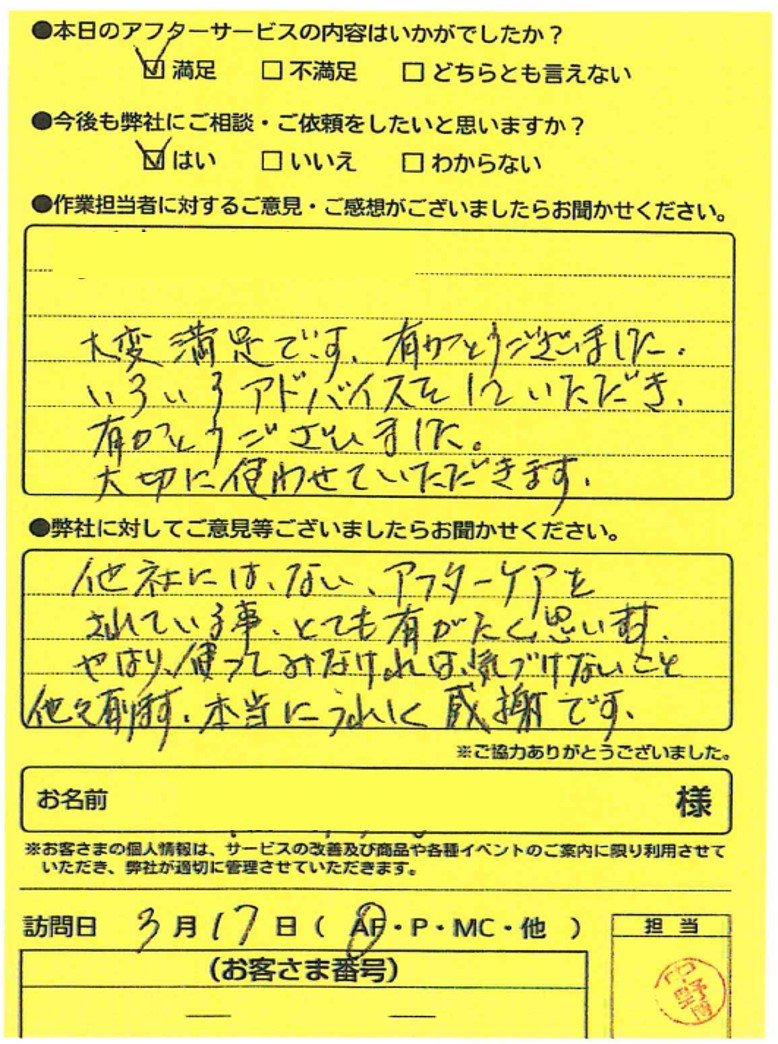 ●本日のアフターサービスの内容はいかがでしたか?
☑満足 □不満足 □どちらとも言えない
●今後も弊社にご相談・ご依頼をしたいと思いますか?
☑はい □いいえ □わからない
●作業担当者に対するご意見・ご感想がございましたらお聞かせください。
大変満足です、有がとうございました。
いろいろアドバイスをしていただき、
有がとうございました。
大切に使わせていただきます。
●弊社に対してご意見等ございましたらお聞かせください。
他社には、ない、アフターケアを
されている事、とても有がたく思います。
やはり、使ってみなければ、気づけないこと
多々有ります。本当にうれしく感謝です。
※ご協力ありがとうございました。
お名前 様
※お客さまの個人情報は、サービスの改善及び商品や各種イベントのご案内に限り利用させて
いただき、弊社が適切に管理させていただきます。
訪問日 3月17日( AF・P・MC・他 ) 担当
(お客さま番号)